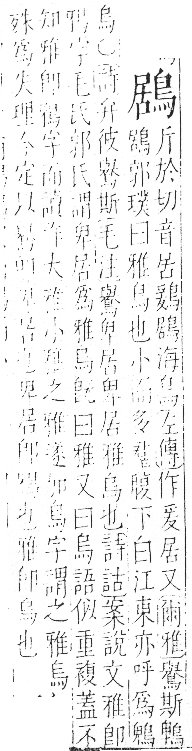 鶋斤於切音居鷄鶋海鳥左傳作爰居又爾雅鸒斯鵯
鶋郭璞曰雅烏也小而多羣腹下白江東亦呼爲鵯
烏○詩弁彼鸒斯毛注鸒卑居卑居雅烏也詩詁案說文雅卽
鴉字毛氏郭氏謂卑居爲雅烏旣曰雅又曰烏語似重複蓋不
知雅卽鴉字而讀作大雅小雅之雅遂加烏字謂之雅烏
殊爲失理今定以居也卑居卽也雅卽烏也